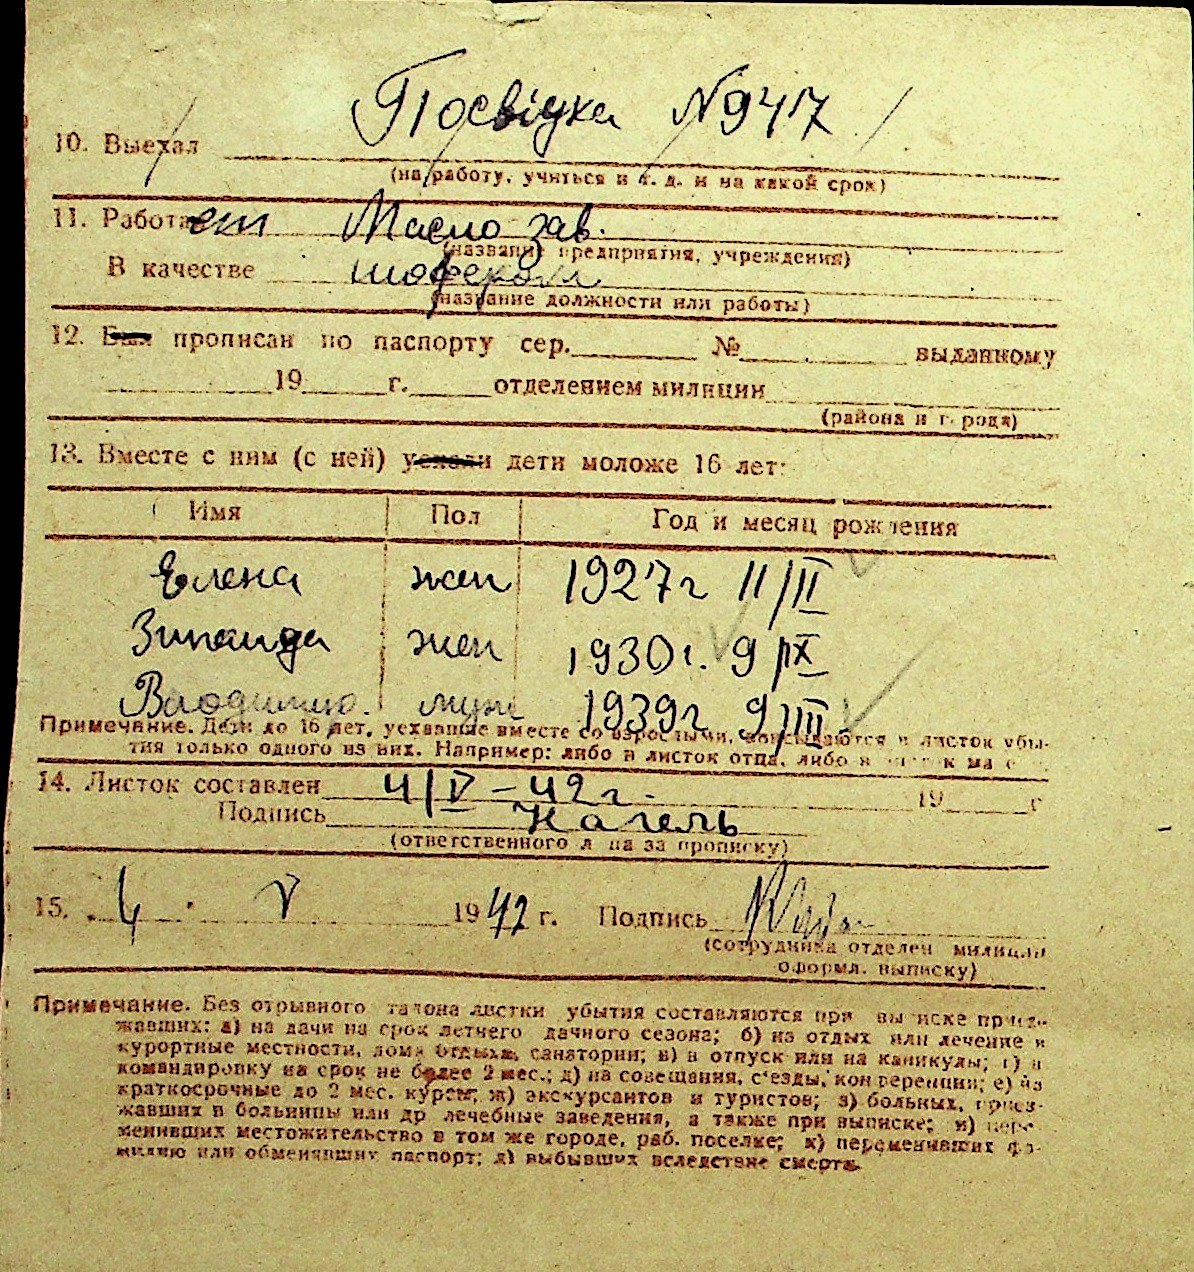 Посвідка №947
10. Выехал
(на работу, учиться и т. д. и на какой срок)
11. Работает Масло зав.
(название предприятия, учреждения)
В качестве шофером
(название должности или работы)
12. Был прописан по паспорту сер. № выданному
19 г. отделением милиции
(района и города)
13. Вместе с ним (с ней) уехали дети моложе 16 лет:
Имя Пол Год и месяц рождения
Елена жен 1927г 11/II
Зинаида жен 1930г. 9/IX
Владимир. муж 1939г 9/III
Примечание. Дети до 16 лет, уехавшие вместе со взрослыми, вписываются в листок убы-
тия только одного из них. Например: либо в листок отца, либо в листок ма
14. Листок составлен 4/V-42г. 19 г
Подпись Нагель
(ответственного лица за прописку)
15. 4. V 1942 г. Подпись
(сотрудника отделен милиции
оформл. выписку)
Примечание. Без отрывного талона листки убытия составляются при выписке приез-
жавших: а) на дачи на срок летнего дачного сезона; б) на отдых или лечение в
курортные местности, дома отдыха, санатории; в) в отпуск или на каникулы; г) в
командировку на срок не более 2 мес.; д) на совещания, с'езды, конференции; е) на
краткосрочные до 2 мес. курсы; ж) экскурсантов и туристов; з) больных, приез-
жавших в больницы или др лечебные заведения, а также при выписке; и) пере-
менивших местожительство в том же городе, раб. поселке; к) переменивших фа-
милию или обменявших паспорт; л) выбывших вследствие смерти.